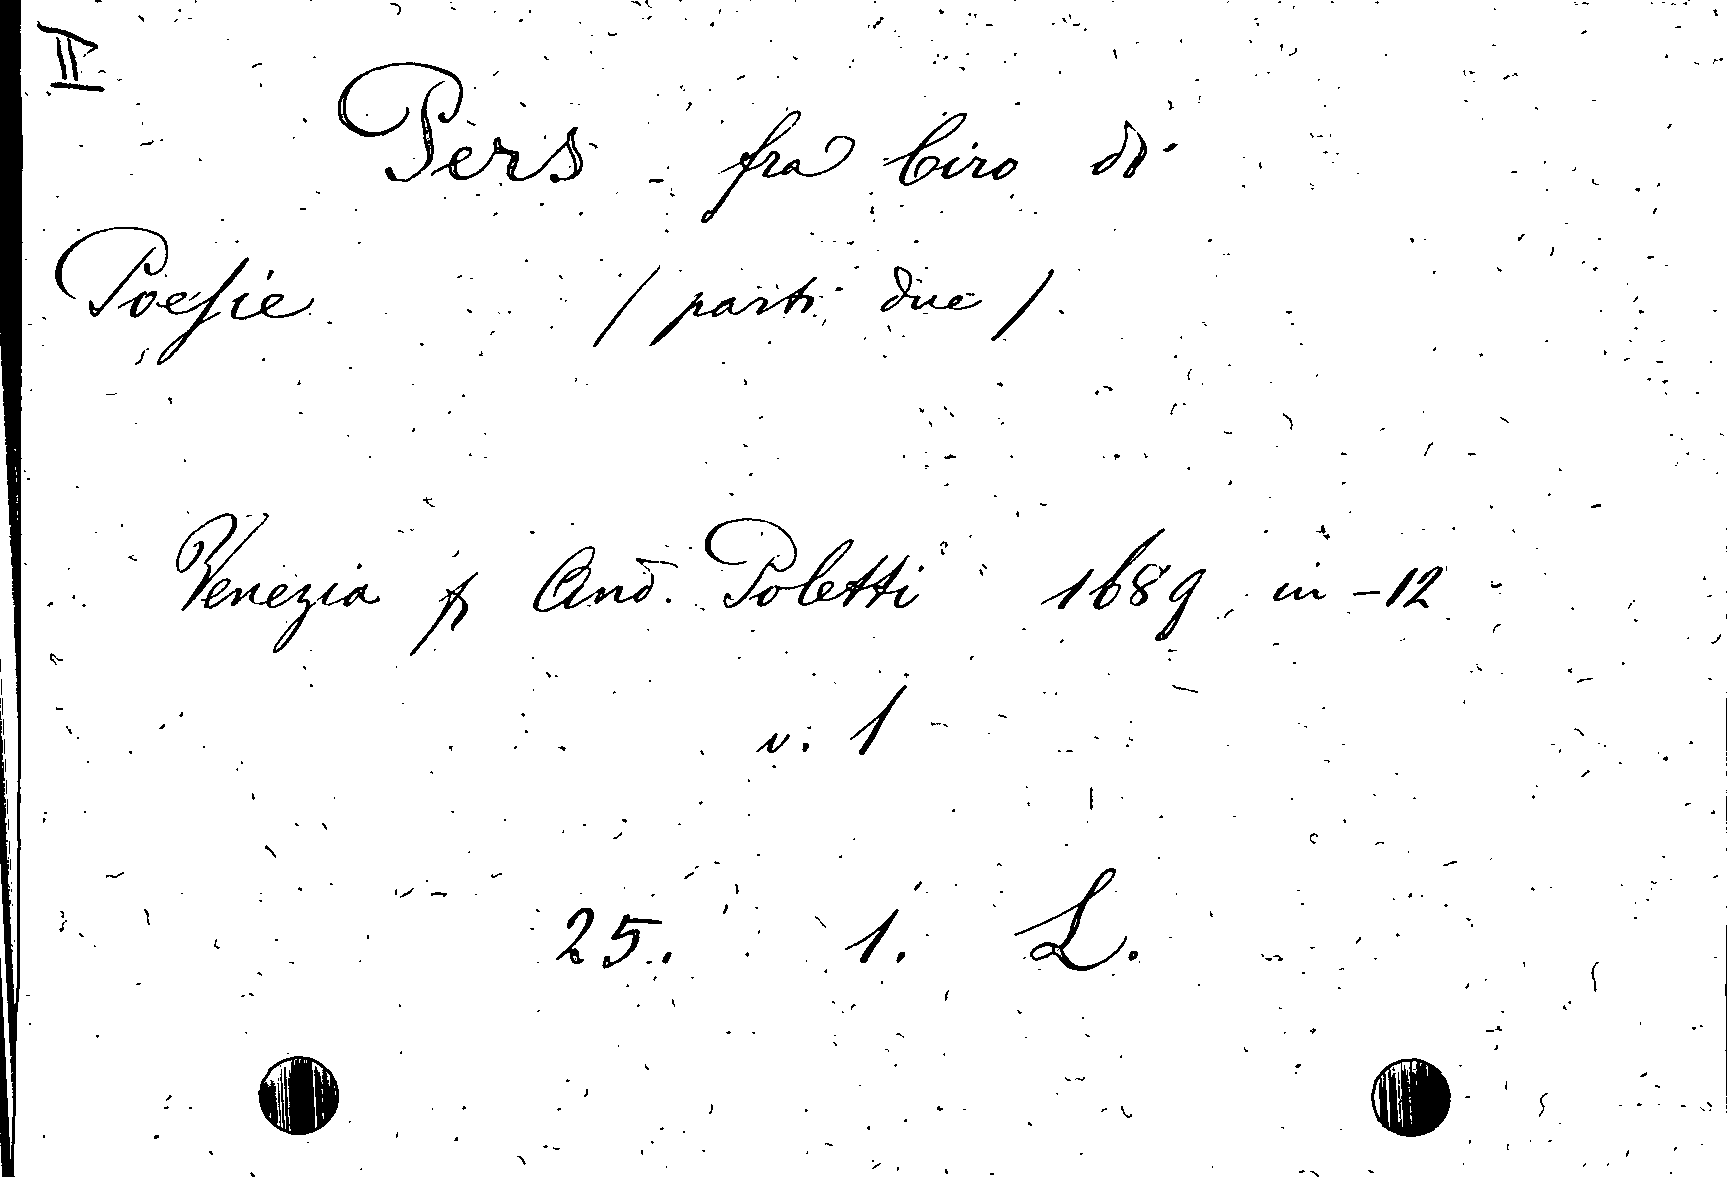 II
Pers - fra Ciro di
Poesie / parti due /
Venezia p And. Poletti 1689 in-12
v. 1
25. 1. L.